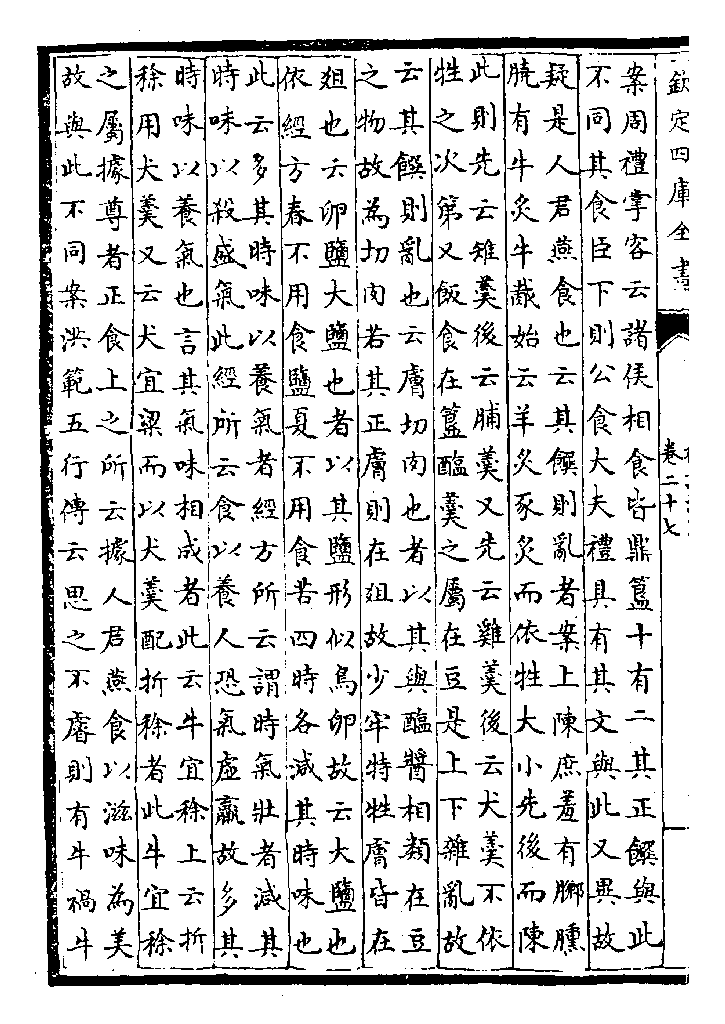 欽定四庫全書
卷二十七
案周禮掌客云諸侯相食皆鼎簋十有二其正饌與此
不同其食臣下則公食大夫禮具有其文與此又異故
疑是人君燕食也云其饌則亂者案上陳庶羞有膷臐
膮有牛炙牛胾始云羊炙豕炙而依牲大小先後而陳
此則先云雉羹後云脯羹又先云雞羹後云犬羹不依
牲之次第又飯食在簋醢羹之屬在豆是上下雜亂故
云其饌則亂也云膚切肉也者以其與醢醬相類在豆
之物故為切肉若其正膚則在俎故少牢特牲膚皆在
俎也云卵鹽大鹽也者以其鹽形似鳥卵故云大鹽也
依經方春不用食鹽夏不用食苦四時各減其時味也
此云多其時味以養氣者經方所云謂時氣壯者減其
時味以殺盛氣此經所云食以養人恐氣虛羸故多其
時味以養氣也言其氣味相成者此云牛宜稌上云折
稌用犬羹又云犬宜粱而以犬羹配折稌者此牛宜稌
之屬據尊者正食上之所云據人君燕食以滋味為美
故與此不同案洪範五行傳云思之不睿則有牛禍牛